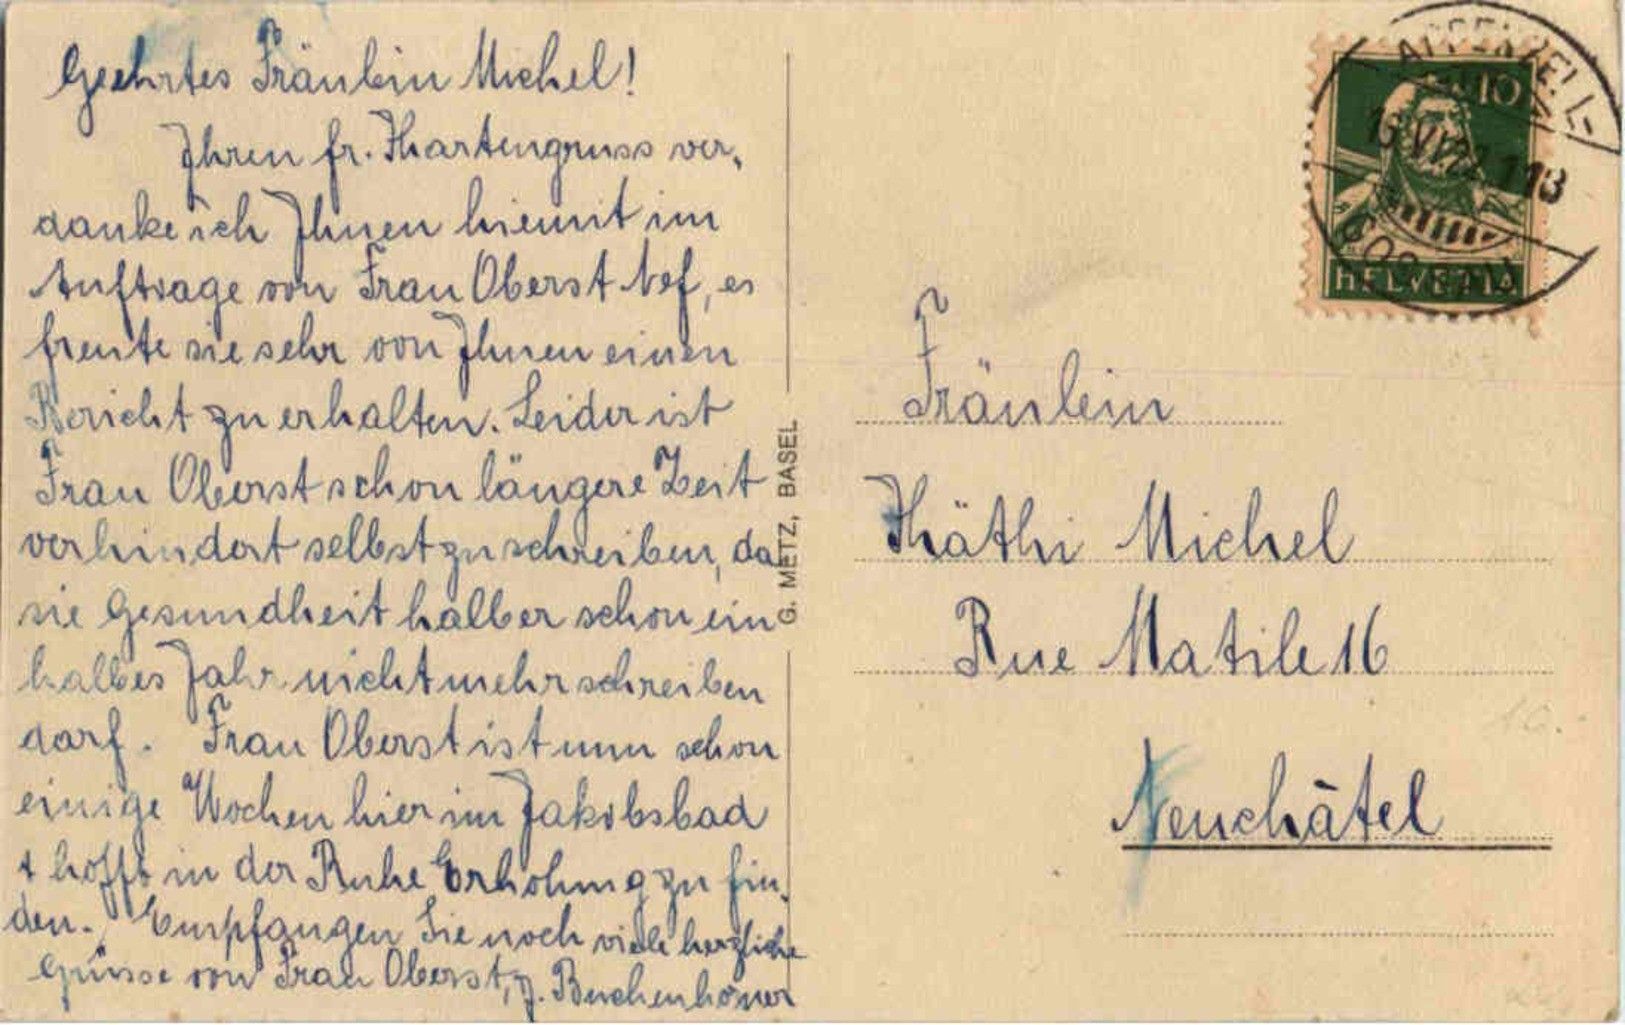 Geehrtes Fräulein Michel!
Ihren fr. Khartengruss ver-
danke ich Ihnen hiemit im
Auftrage von Frau Oberst Nef, es
freute sie sehr von Ihnen einen
Bericht zu erhalten. Leider ist
Frau Oberst schon längere Zeit
verhindert selbst zu schreiben, da
sie Gesundheit halber schon ein
halbes Jahr nicht mehr schreiben
darf. Frau Oberst ist nun schon
einige Wochen hier im Jakobsbad
& hofft in der Ruhe Erholung zu fin-
den. Empfangen Sie noch viele herzliche
Grüsse von Frau Oberst, J.
G. METZ, BASEL
APPENZELL-
10
16.VI.22
GONTEN
HELVETIA
Fräulein
Khäthi Michel
Rue Matile 16
Neuchâtel